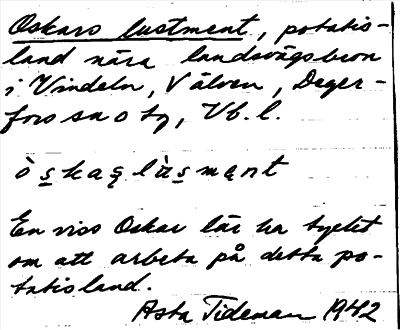 Oskars lustment, potatis-
land nära landsvägsbron
i Vindeln, V älven, Deger-
fors sn o tg, Vb. l.
ò s̱kaşlùs̱mąnt
En viss Oskar lär ha tyckt
om att arbeta på detta po-
tatisland.
Asta Tideman 1942